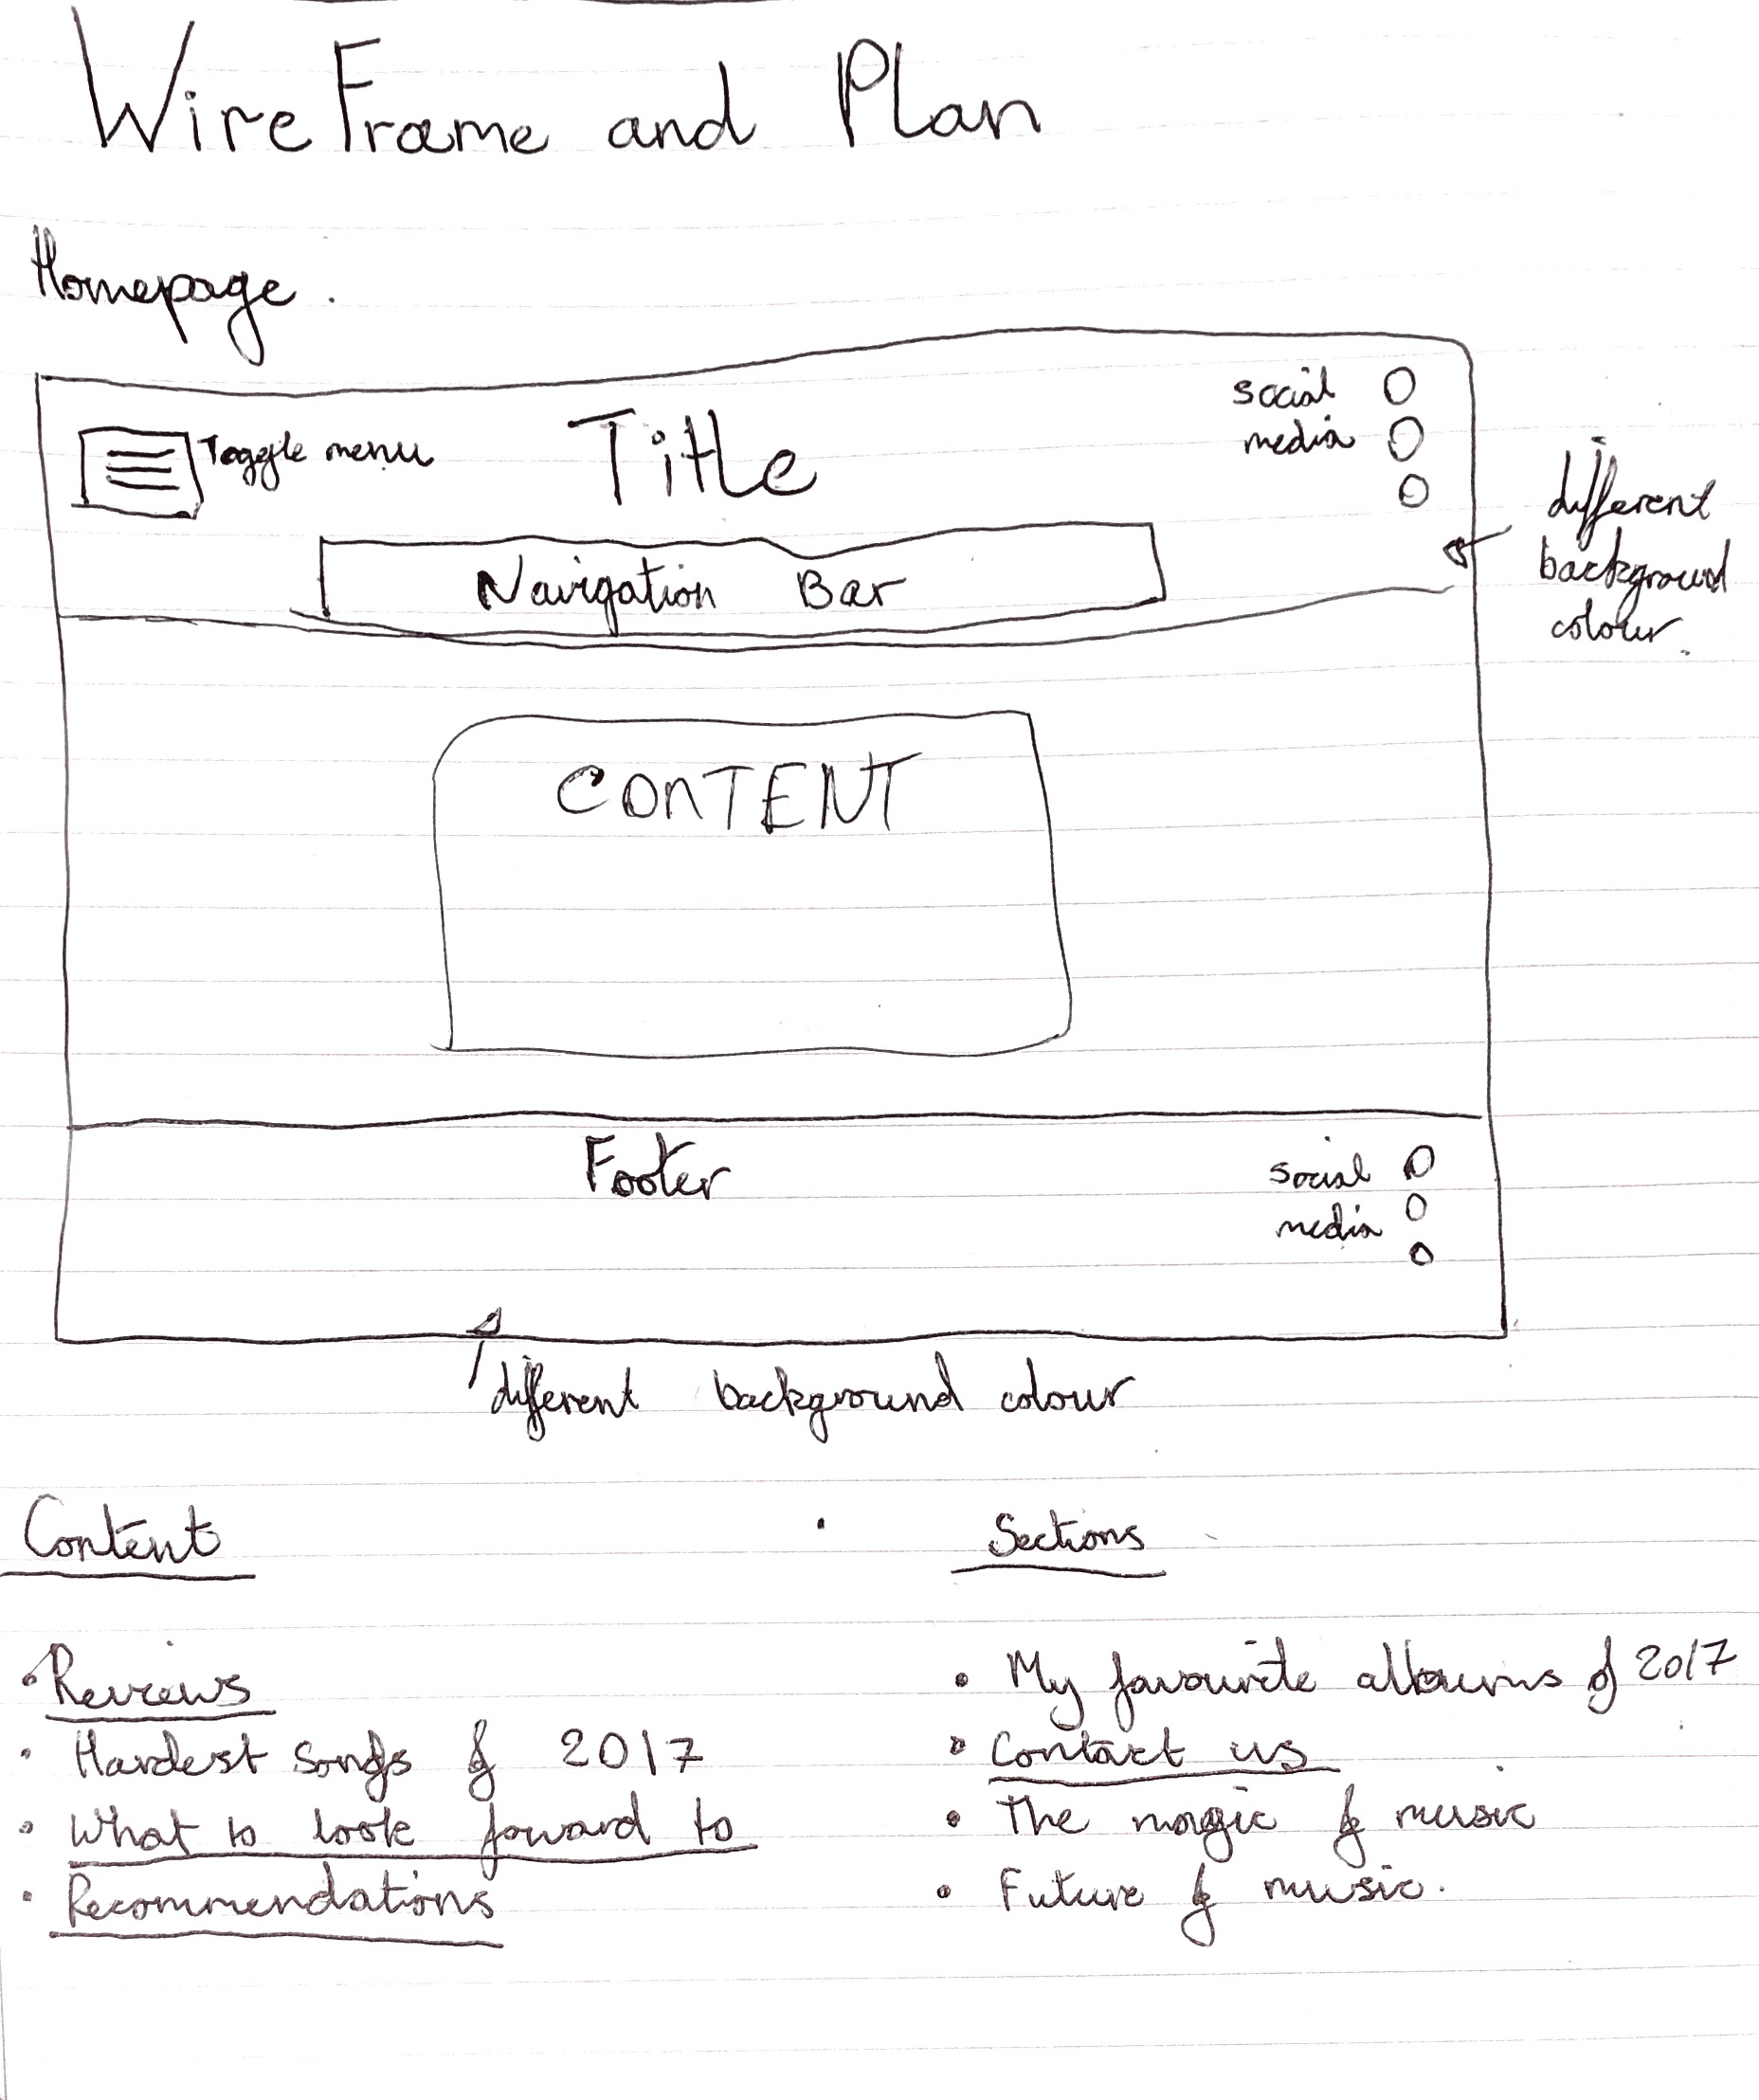 WireFrame and Plan
Homepage.
Toggle menu
Title
social
media
Navigation Bar
different
background
colour
CONTENT
Footer
social
media
different background colour
Content
• Reviews
• Hardest songs of 2017
• What to look foward to
• Recommendations
Sections
• My favourite albums of 2017
• Contact us
• The magic of music
• Future of music.